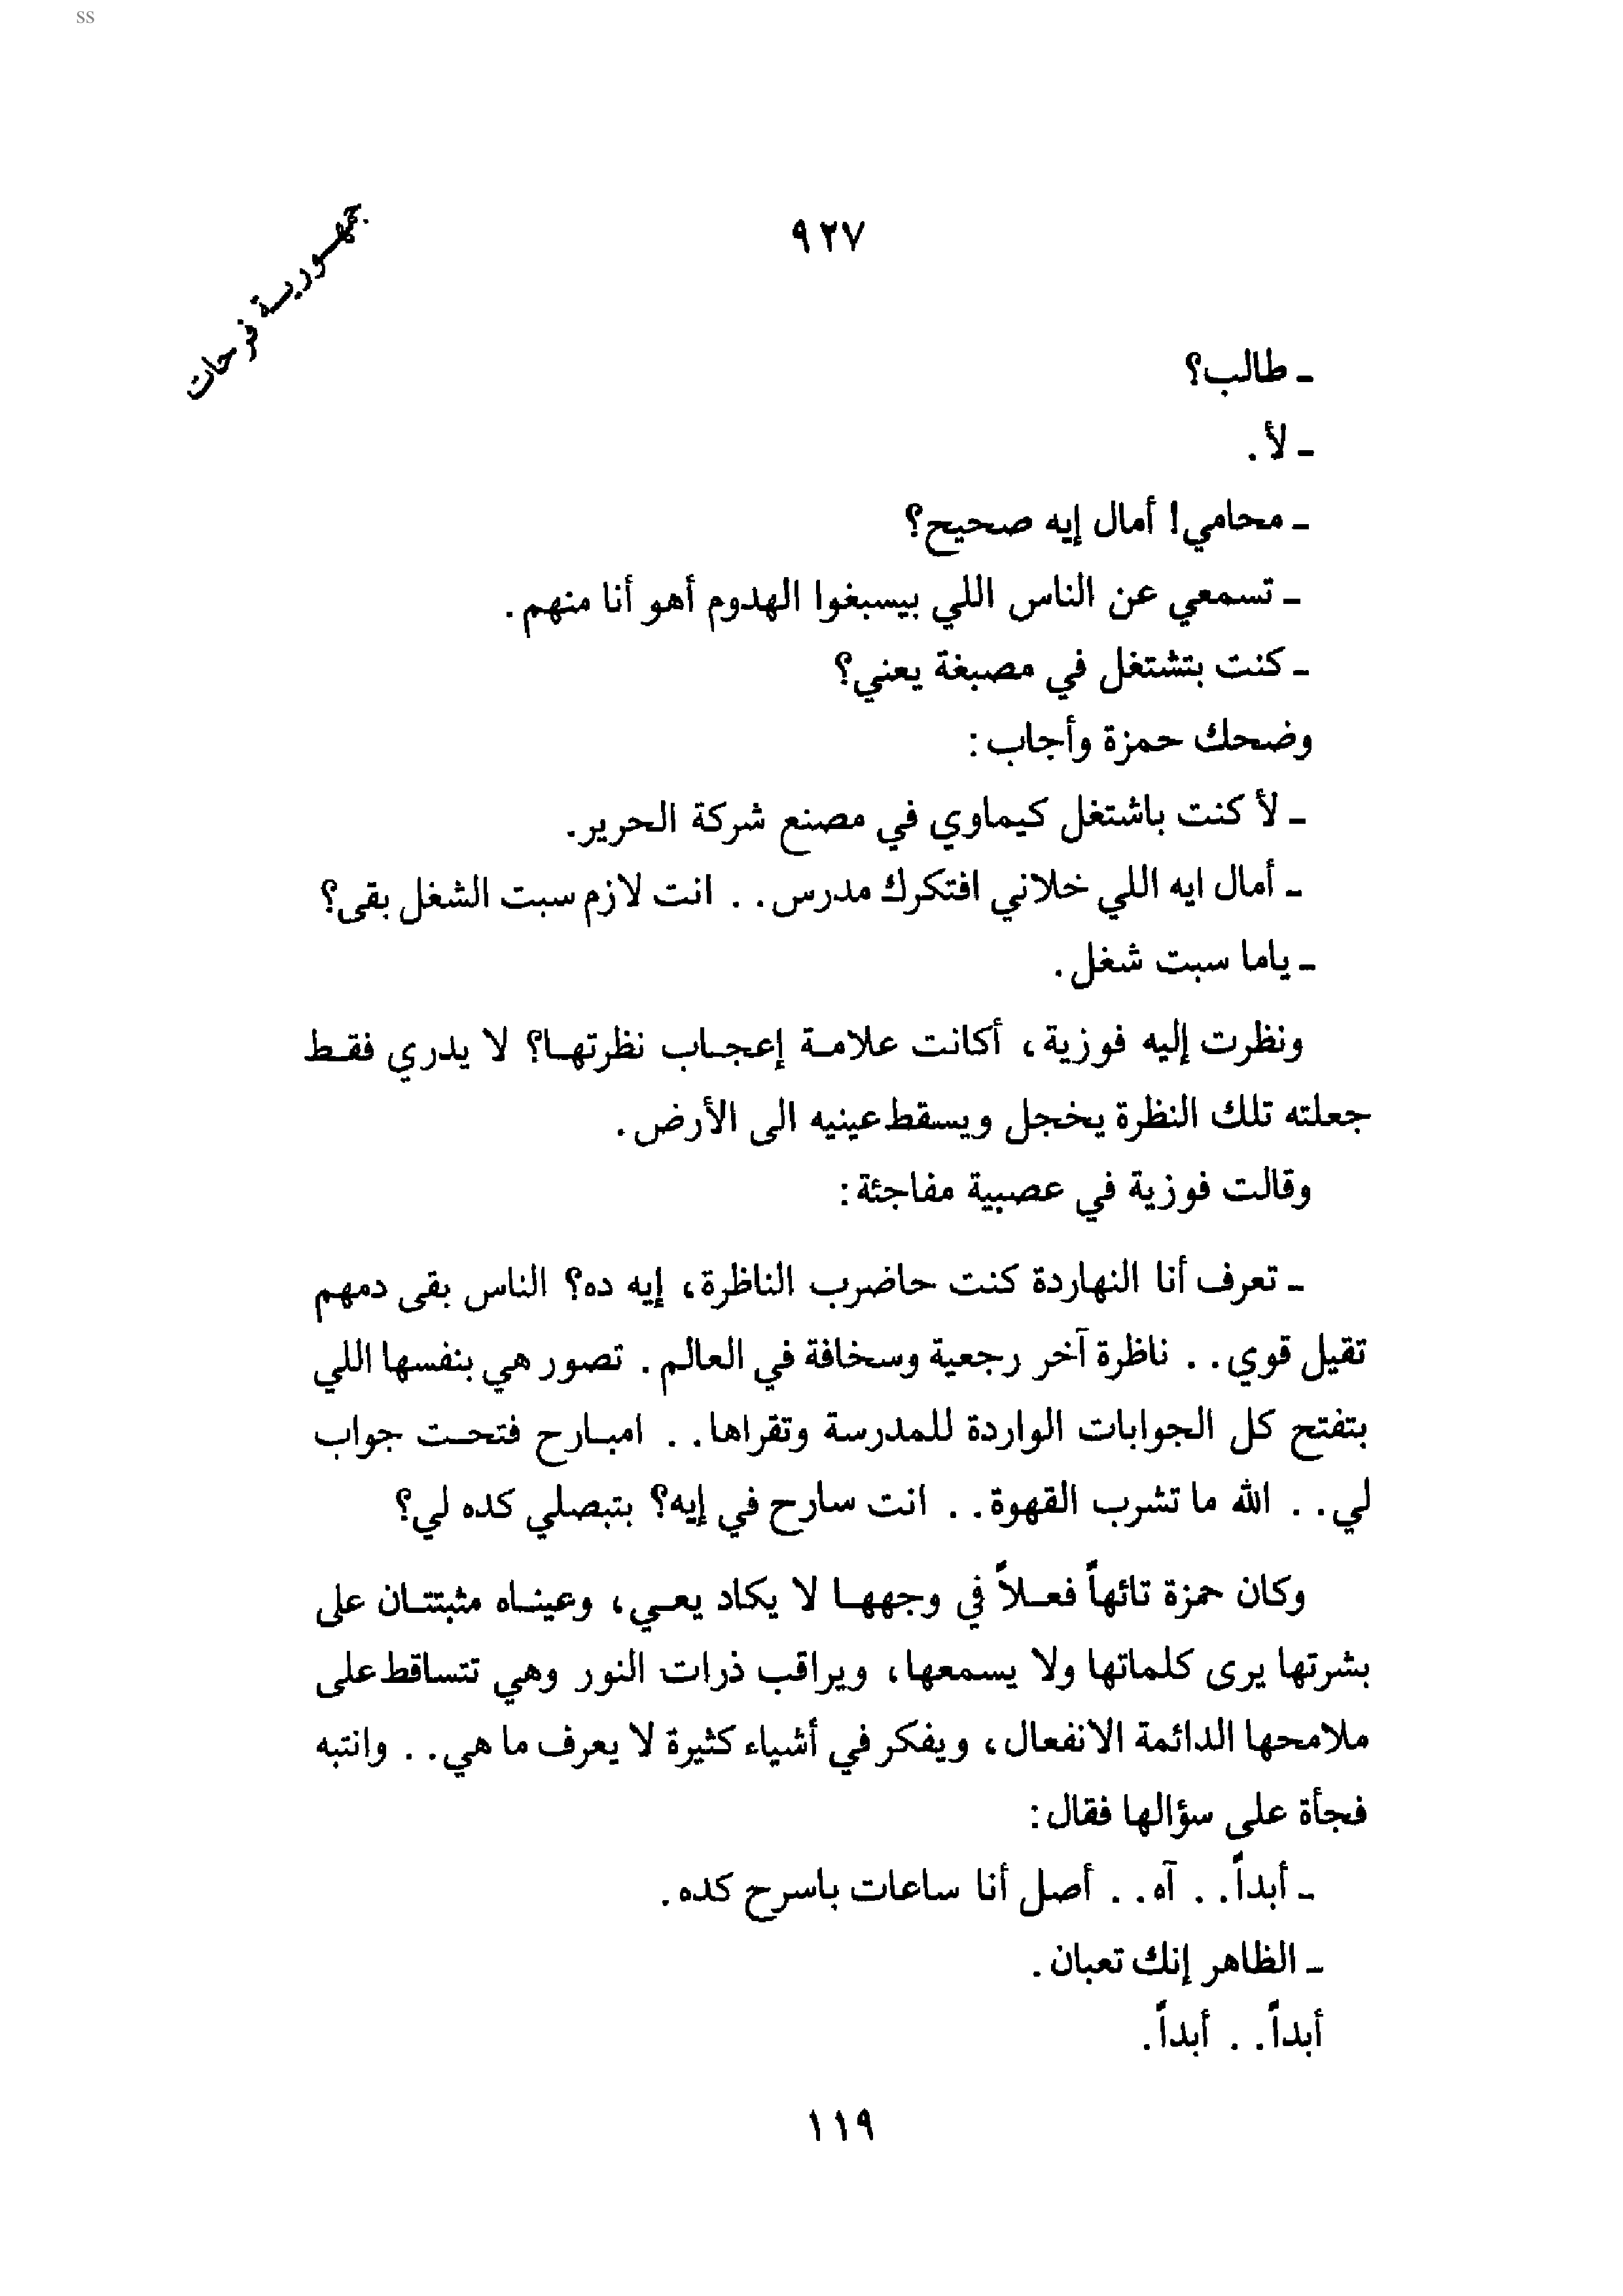 ss
٩٢٧
جمهورية فرحات
ـ طالب؟
ـ لأ .
ـ محامي! أمال إيه صحيح؟
ـ تسمعي عن الناس اللي بيسبغوا الهدوم أهو أنا منهم .
ـ كنت بتشتغل في مصبغة يعني؟
وضحك حمزة وأجاب :
ـ لأ كنت باشتغل كيماوي في مصنع شركة الحرير.
ـ أمال ايه اللي خلاني افتكرك مدرس . . انت لازم سبت الشغل بقى؟
ـ ياما سبت شغل .
ونظرت إليه فوزية، أكانت علامة إعجاب نظرتها؟ لا يدري فقط
جعلته تلك النظرة يخجل ويسقط عينيه الى الأرض .
وقالت فوزية في عصبية مفاجئة :
ـ تعرف أنا النهاردة كنت حاضرب الناظرة، إيه ده؟ الناس بقى دمهم
تقيل قوي . . ناظرة آخر رجعية وسخافة في العالم . تصور هي بنفسها اللي
بتفتح كل الجوابات الواردة للمدرسة وتقراها . . امبارح فتحت جواب
لي . . الله ما تشرب القهوة . . انت سارح في إيه؟ بتبصلي كده لي؟
وكان حمزة تائهاً فعلاً في وجهها لا يكاد يعي، وعيناه مثبتتان على
بشرتها يرى كلماتها ولا يسمعها، ويراقب ذرات النور وهي تتساقط على
ملامحها الدائمة الانفعال، ويفكر في أشياء كثيرة لا يعرف ما هي . . وانتبه
فجأة على سؤالها فقال :
ـ أبداً . . آه . . أصل أنا ساعات باسرح كده .
ـ الظاهر إنك تعبان .
أبداً . . أبداً .
١١٩